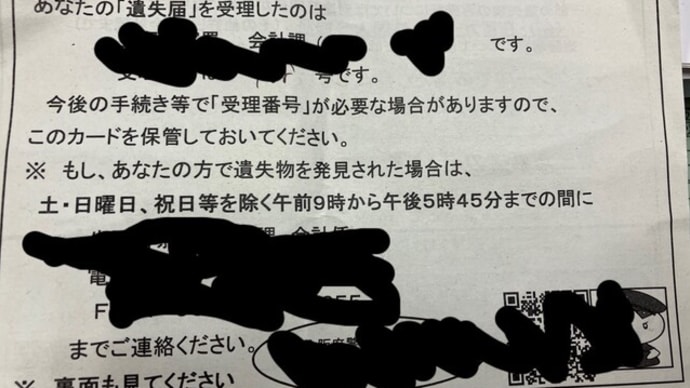 あなたの「遺失届」を受理したのは
会計課
です。
号です。
今後の手続き等で「受理番号」が必要な場合がありますので、
このカードを保管しておいてください。
※ もし、あなたの方で遺失物を発見された場合は、
土・日曜日、祝日等を除く午前9時から午後5時45分までの間に
までご連絡ください。
※ 裏面も見てください